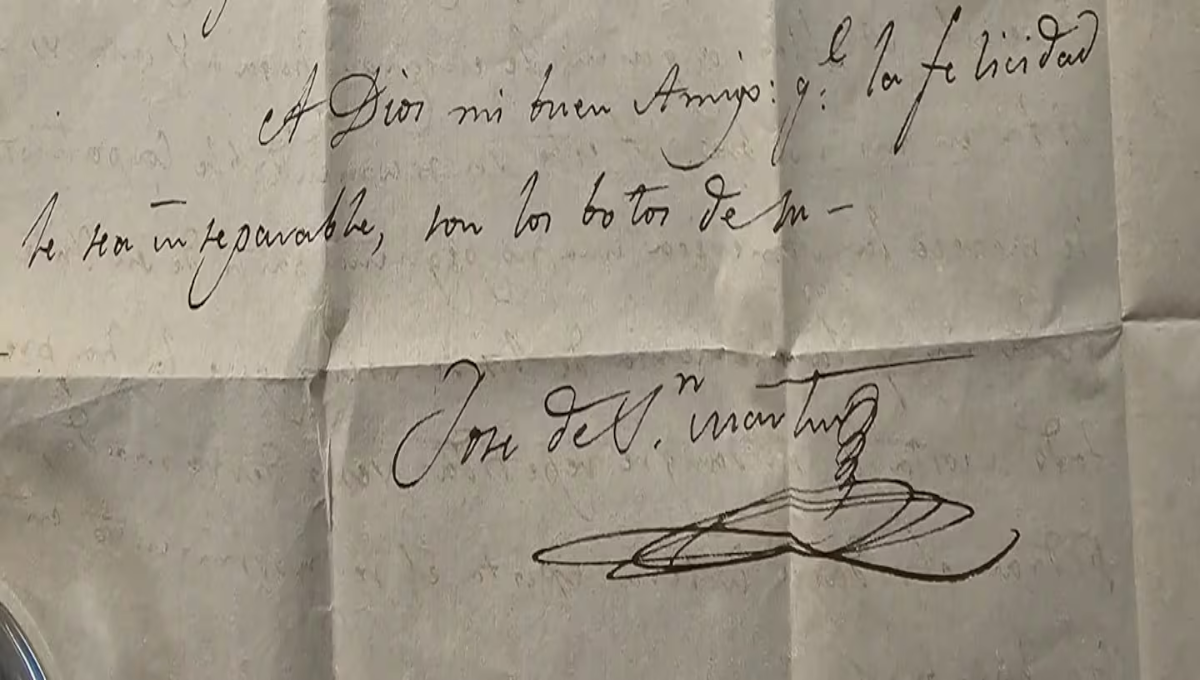 A Dios mi buen Amigo: q.e la felicidad
le sea inseparable, son los botos de su –
Jose de S.n martin